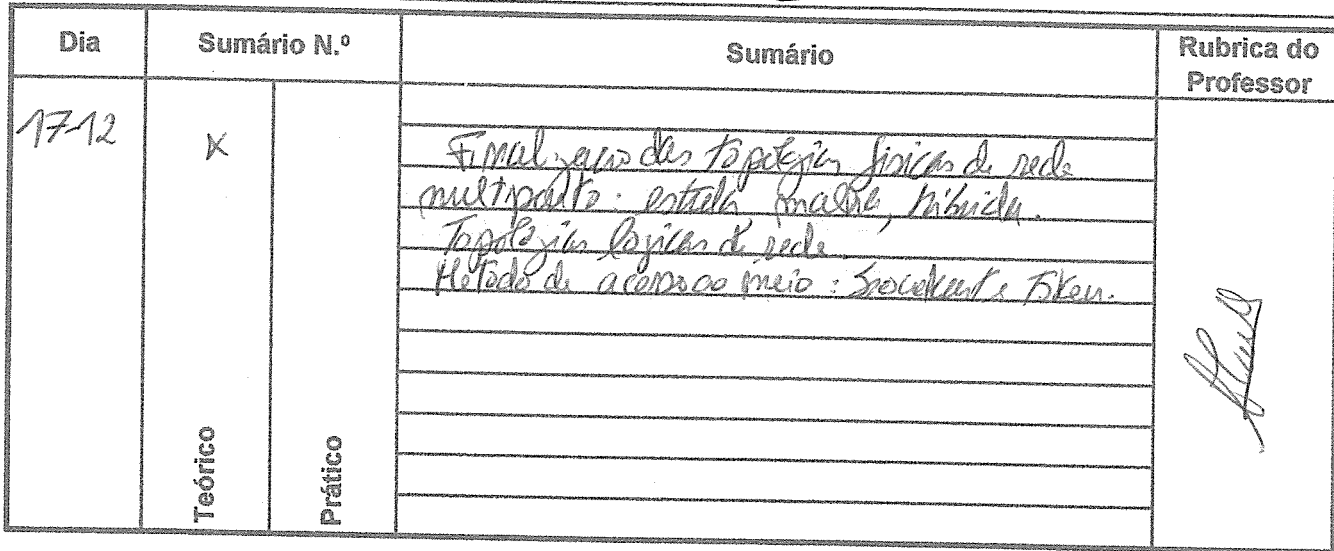 Dia
Sumário N.º
Sumário
Rubrica do
Professor
17-12
X
Finalização das topologias físicas de rede
multiponto: estrela, malha, híbrida.
Topologias lógicas de rede.
Método de acesso ao meio: e Token.
Teórico
Prático